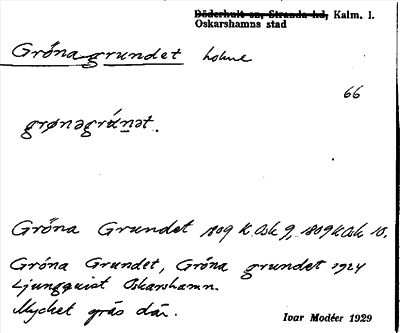 Döderhult sn, Stranda hd, Kalm. l.
Oskarshamns stad
Gröna grundet holme
66
grønəgrúnət.
Gröna Grundet 1809 K. Osk 9, 1809 K Osk 10.
Gröna Grundet, Gröna grundet 1924
Ljungquist Oskarshamn.
Mycket gräs där.
Ivar Modéer 1929